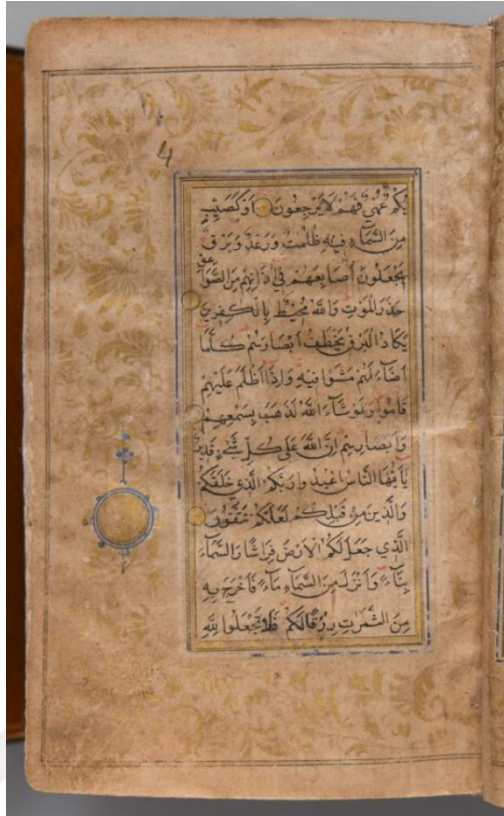 بُكْمٌ عُمْيٌ فَهُمْ لَا يَرْجِعُونَ اَوْ كَصَيِّبٍ
مِنَ السَّمَآءِ فِيهِ ظُلُمٰتٌ وَرَعْدٌ وَبَرْقٌ
يَجْعَلُونَ اَصَابِعَهُمْ فِيٓ اٰذَانِهِمْ مِنَ الصَّوَاعِقِ
حَذَرَ الْمَوْتِ وَاللّٰهُ مُحِيطٌ بِالْكٰفِرِينَ
يَكَادُ الْبَرْقُ يَخْطَفُ اَبْصَارَهُمْ كُلَّمَا
اَضَآءَ لَهُمْ مَشَوْا فِيهِ وَاِذَا اَظْلَمَ عَلَيْهِمْ
قَامُوا وَلَوْ شَآءَ اللّٰهُ لَذَهَبَ بِسَمْعِهِمْ
وَاَبْصَارِهِمْ اِنَّ اللّٰهَ عَلٰى كُلِّ شَيْءٍ قَدِيرٌ
يَآ اَيُّهَا النَّاسُ اعْبُدُوا رَبَّكُمُ الَّذِي خَلَقَكُمْ
وَالَّذِينَ مِنْ قَبْلِكُمْ لَعَلَّكُمْ تَتَّقُونَ
الَّذِي جَعَلَ لَكُمُ الْاَرْضَ فِرَاشًا وَالسَّمَآءَ
بِنَآءً وَاَنْزَلَ مِنَ السَّمَآءِ مَآءً فَاَخْرَجَ بِهِ
مِنَ الثَّمَرٰتِ رِزْقًا لَكُمْ فَلَا تَجْعَلُوا لِلّٰهِ